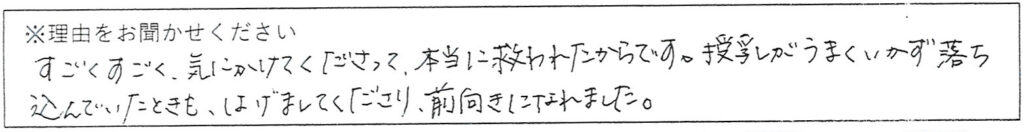 ※理由をお聞かせください
すごくすごく、気にかけてくださって、本当に救われたからです。授乳がうまくいかず落ち
込んでいたときも、はげましてくださり、前向きになれました。